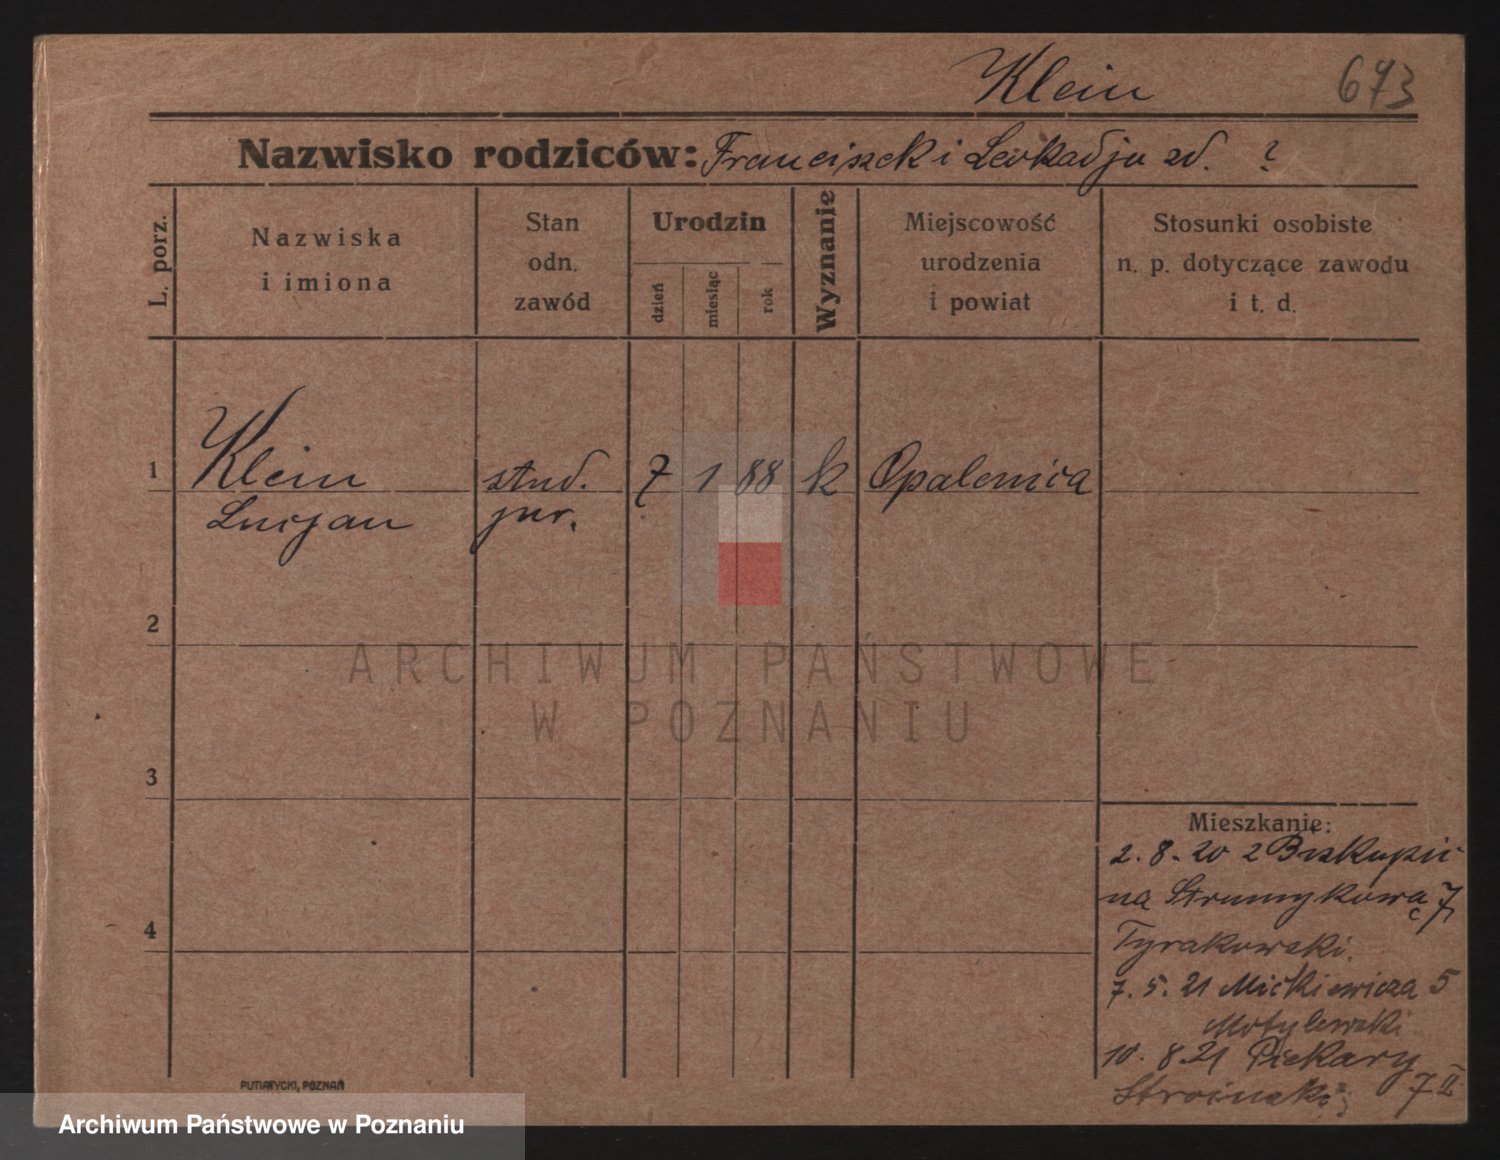 Klein 673
Nazwisko rodziców: Franciszek i Leokadja zd. ?
L. porz.
Nazwiska
i imiona
Stan
odn.
zawód
Urodzin
dzień
miesiąc
rok
Wyznanie
Miejscowość
urodzenia
i powiat
Stosunki osobiste
n. p. dotyczące zawodu
i t. d.
1 Klein stud. 7 1 88 k Opalenica
Lucjan jur.
2
3
4
Mieszkanie:
2. 8. 20 z Biskupic
na Strumykową 7
Tyrakowski.
7. 5. 21 Mickiewicza 5
Motylewski
10. 8. 21 Piekary
Stroiński 7 II
PUTIATYCKI, POZNAŃ
ARCHIWUM PAŃSTWOWE
W POZNANIU
Archiwum Państwowe w Poznaniu